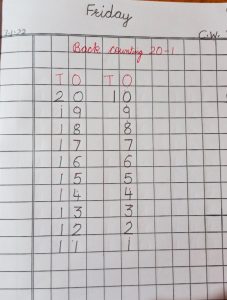 Friday
C.W.
Back counting 20-1
T O T O
2 0 1 0
1 9 9
1 8 8
1 7 7
1 6 6
1 5 5
1 4 4
1 3 3
1 2 2
1 1 1